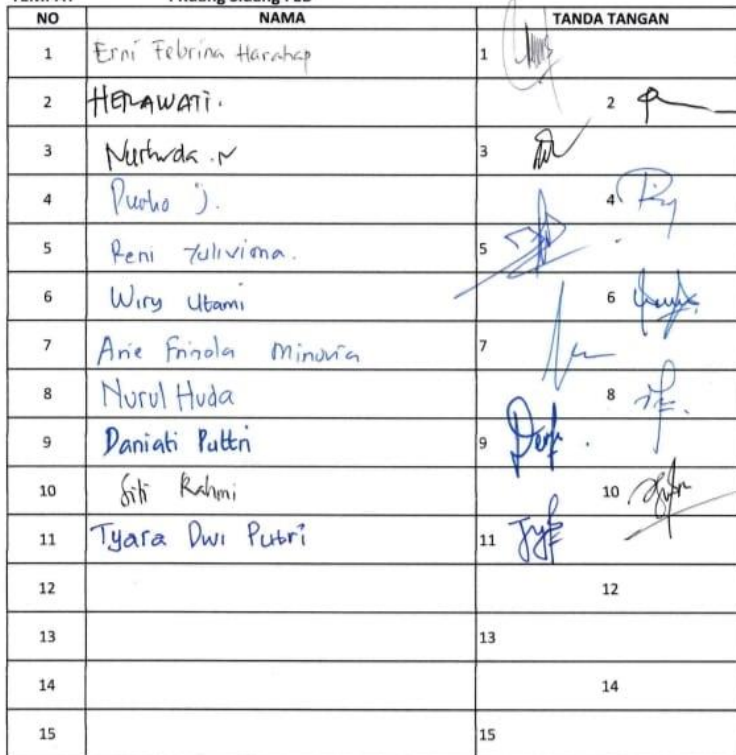 NO NAMA TANDA TANGAN
1 Erni Febrina Harahap 1
2 HERAWATI. 2
3 Nurhuda .N 3
4 4
5 Reni Yuliviona. 5
6 Wiry Utami 6
7 Arie Frinola Minovia 7
8 Nurul Huda 8
9 Daniati Puttri 9
10 Siti Rahmi 10
11 Tyara Dwi Putri 11
12 12
13 13
14 14
15 15